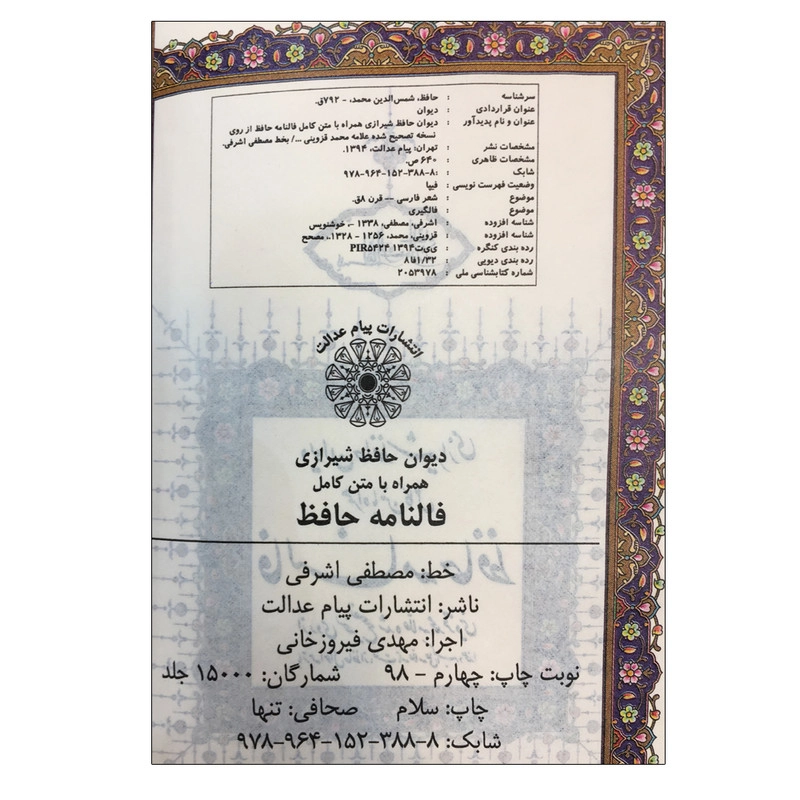 سرشناسه : حافظ، شمس‌الدین محمد، - ۷۹۲ق.
عنوان قراردادی : دیوان
عنوان و نام پدیدآور : دیوان حافظ شیرازی همراه با متن کامل فالنامه حافظ از روی
نسخه تصحیح شده علامه محمد قزوینی .../ بخط مصطفی اشرفی.
مشخصات نشر : تهران: پیام عدالت، ۱۳۹۴.
مشخصات ظاهری : ۶۴۰ ص.
شابک : ۹۷۸-۹۶۴-۱۵۲-۳۸۸-۸:
وضعیت فهرست نویسی : فیپا
موضوع : شعر فارسی -- قرن ۸ق.
موضوع : فالگیری
شناسه افزوده : اشرفی، مصطفی، ۱۳۳۸ -، خوشنویس
شناسه افزوده : قزوینی، محمد، ۱۲۵۶ - ۱۳۲۸.، مصحح
رده بندی کنگره : PIR۵۴۲۴ ۱۳۹۴
رده بندی دیویی : ۸فا۱/۳۲
شماره کتابشناسی ملی : ۲۰۵۳۹۷۸
انتشارات پیام عدالت
دیوان حافظ شیرازی
همراه با متن کامل
فالنامه حافظ
خط: مصطفی اشرفی
ناشر: انتشارات پیام عدالت
اجرا: مهدی فیروزخانی
نوبت چاپ: چهارم - ۹۸ شمارگان: ۱۵۰۰۰ جلد
چاپ: سلام صحافی: تنها
شابک: ۸-۳۸۸-۱۵۲-۹۶۴-۹۷۸